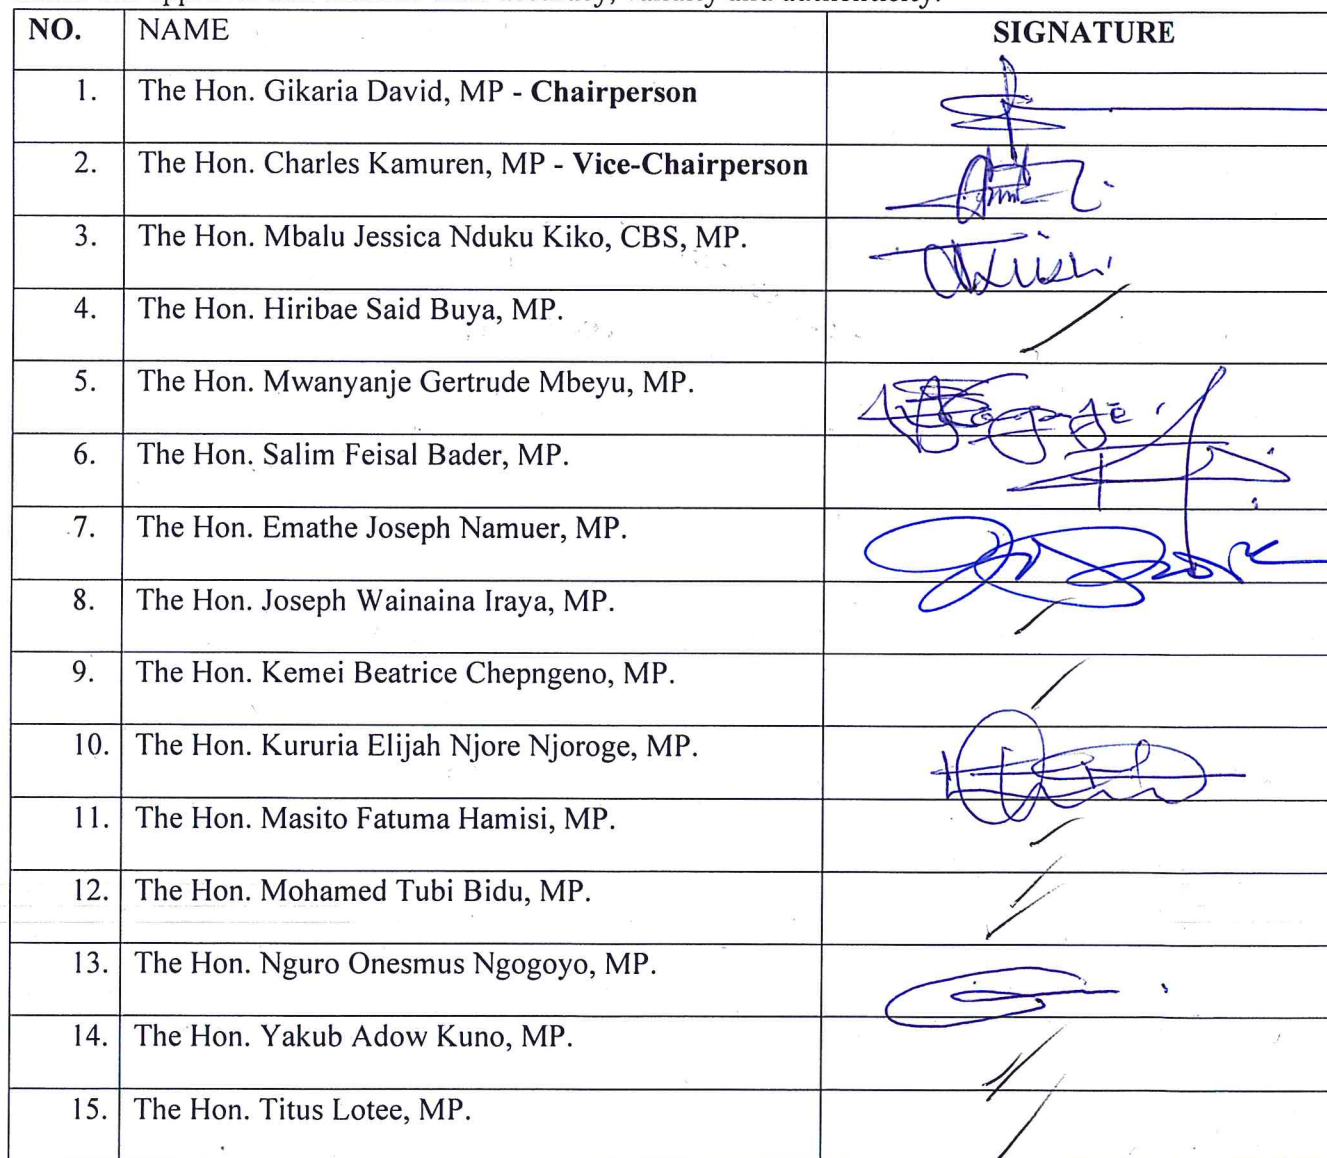 accuracy, validity and authenticity.
NO. NAME SIGNATURE
1. The Hon. Gikaria David, MP - Chairperson
2. The Hon. Charles Kamuren, MP - Vice-Chairperson
3. The Hon. Mbalu Jessica Nduku Kiko, CBS, MP.
4. The Hon. Hiribae Said Buya, MP.
5. The Hon. Mwanyanje Gertrude Mbeyu, MP.
6. The Hon. Salim Feisal Bader, MP.
7. The Hon. Emathe Joseph Namuer, MP.
8. The Hon. Joseph Wainaina Iraya, MP.
9. The Hon. Kemei Beatrice Chepngeno, MP.
10. The Hon. Kururia Elijah Njore Njoroge, MP.
11. The Hon. Masito Fatuma Hamisi, MP.
12. The Hon. Mohamed Tubi Bidu, MP.
13. The Hon. Nguro Onesmus Ngogoyo, MP.
14. The Hon. Yakub Adow Kuno, MP.
15. The Hon. Titus Lotee, MP.